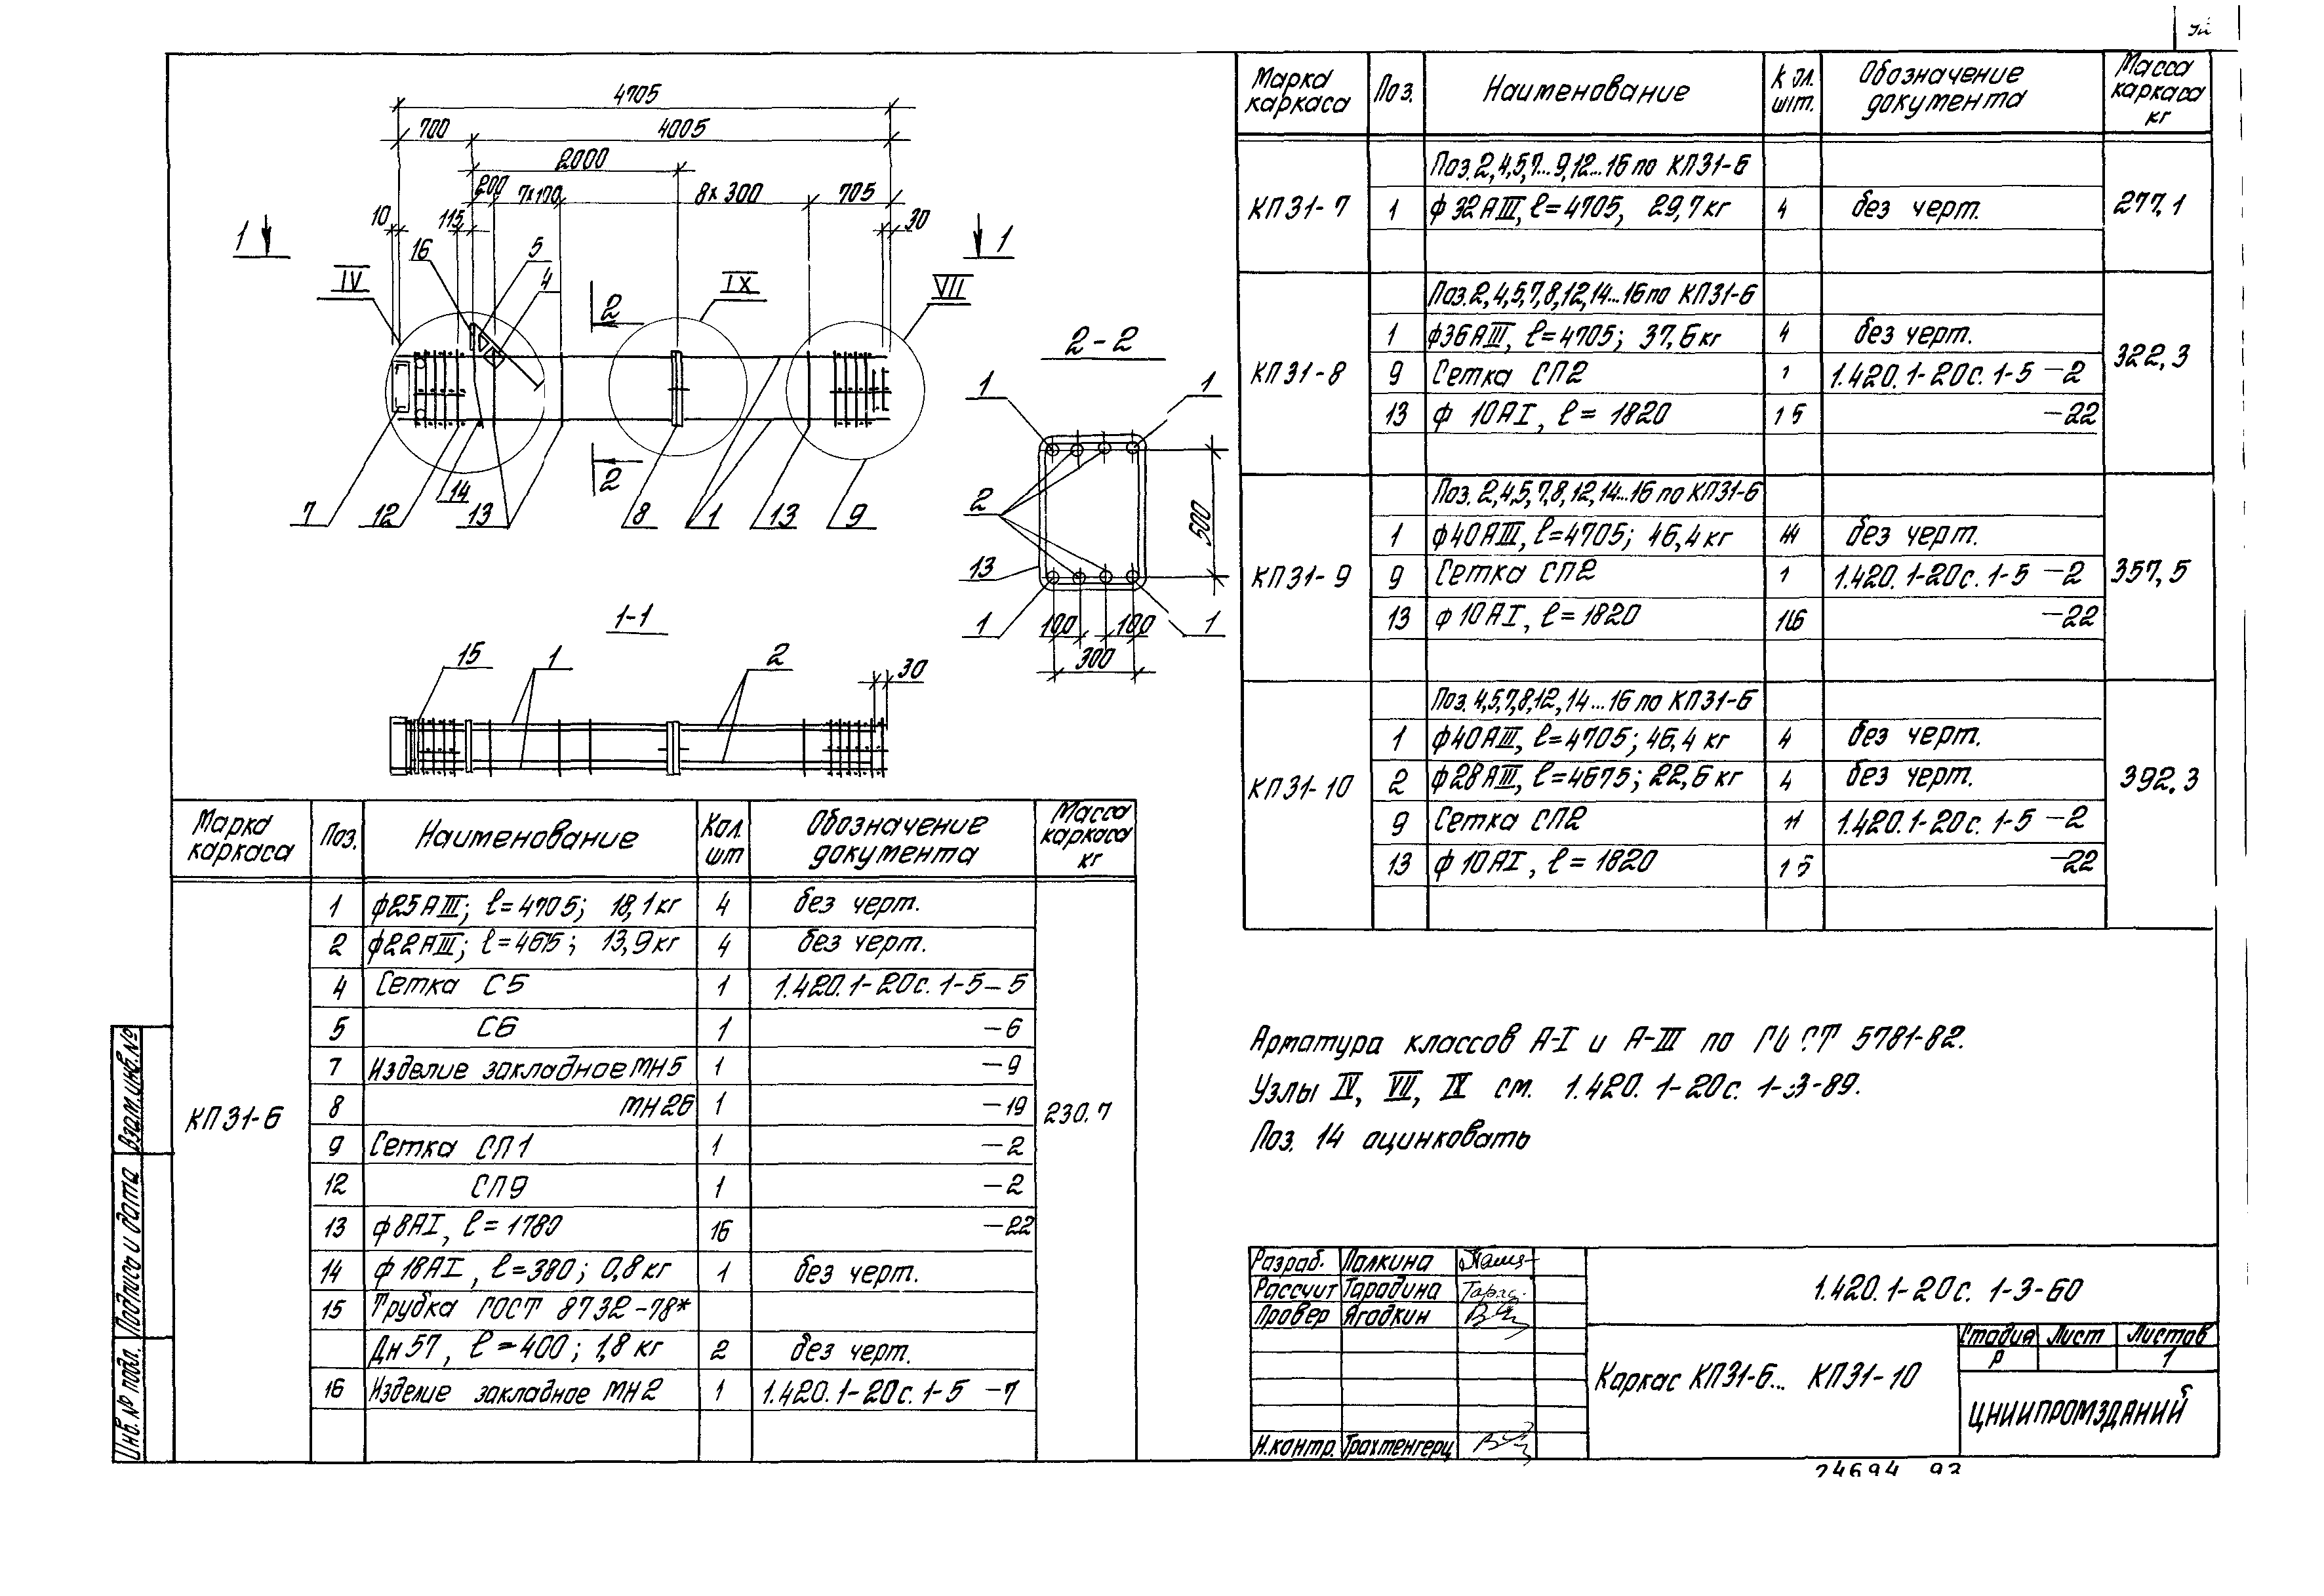 4705
700 4005
2000
200 7х100 8х300 705
10 115 30
1 1
16 5 4
IV IX VII
2
2
7 12 14 13 8 1 13 9
2-2
1 1
2
13
500
1 1
100 100
300
1-1
15 1 2 30
Марка каркаса Поз. Наименование Кол. шт Обозначение документа Масса каркаса кг
КП31-6 230.7
1 ф25АIII; ℓ=4705; 18,1кг 4 без черт.
2 ф22АIII; ℓ=4675; 13,9кг 4 без черт.
4 Сетка С5 1 1.420.1-20с.1-5-5
5 С6 1 -6
7 Изделие закладное МН5 1 -9
8 МН26 1 -19
9 Сетка СП1 1 -2
12 СП9 1 -2
13 ф8АI, ℓ=1780 16 -22
14 ф18АI, ℓ=380; 0,8кг 1 без черт.
15 Трубка ГОСТ 8732-78*
Дн57, ℓ=400; 1,8кг 2 без черт.
16 Изделие закладное МН2 1 1.420.1-20с.1-5 -7
Марка каркаса Поз. Наименование Кол. шт. Обозначение документа Масса каркаса кг
Поз.2,4,5,7...9,12...16 по КП31-6
КП31-7 1 ф32АIII, ℓ=4705, 29,7кг 4 без черт. 277,1
Поз.2,4,5,7,8,12,14...16 по КП31-6
1 ф36АIII, ℓ=4705; 37,6кг 4 без черт.
КП31-8 9 Сетка СП2 1 1.420.1-20с.1-5 -2 322,3
13 ф10АI, ℓ=1820 15 -22
Поз.2,4,5,7,8,12,14...16 по КП31-6
1 ф40АIII, ℓ=4705; 46,4кг без черт.
КП31-9 9 Сетка СП2 1 1.420.1-20с.1-5 -2 357,5
13 ф10АI, ℓ=1820 -22
Поз.4,5,7,8,12,14...16 по КП31-6
1 ф40АIII, ℓ=4705; 46,4кг 4 без черт.
КП31-10 2 ф28АIII, ℓ=4675; 22,6кг 4 без черт. 392.3
9 Сетка СП2 1.420.1-20с.1-5 -2
13 ф10АI, ℓ=1820 15 -22
Арматура классов А-I и А-III по ГОСТ 5781-82.
Узлы IV, VII, IX см. 1.420.1-20с.1-3-89.
Поз. 14 оцинковать
Разраб. Палкина
Рассчит Тарадина
Провер Ягодкин
Н.контр. Трахтенгерц
1.420.1-20с. 1-3-60
Каркас КП31-6... КП31-10
Стадия Лист Листов
Р 1
ЦНИИПРОМЗДАНИЙ
Взам.инв.№
Подпись и дата
Инв.№ подл.
24694 93